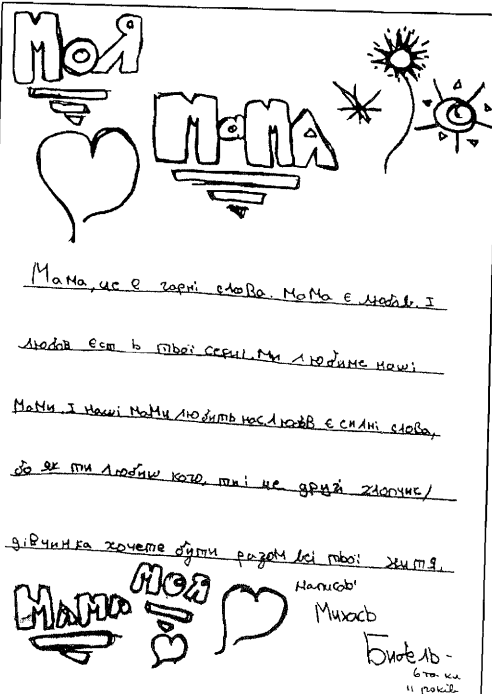 Моя
Мама
Мама, це є гарні слова. Мама є любов. І
любов єст в твоі серці. Ми любиме наші
мами. І наші мами любить нас. Любов є силні слова,
бо як ти любиш кого, ти і це другй хлопчик/
дівчинка хочете бути разом всі твоі життя.
Мама Моя
написав
Михась
6та кл
11 років